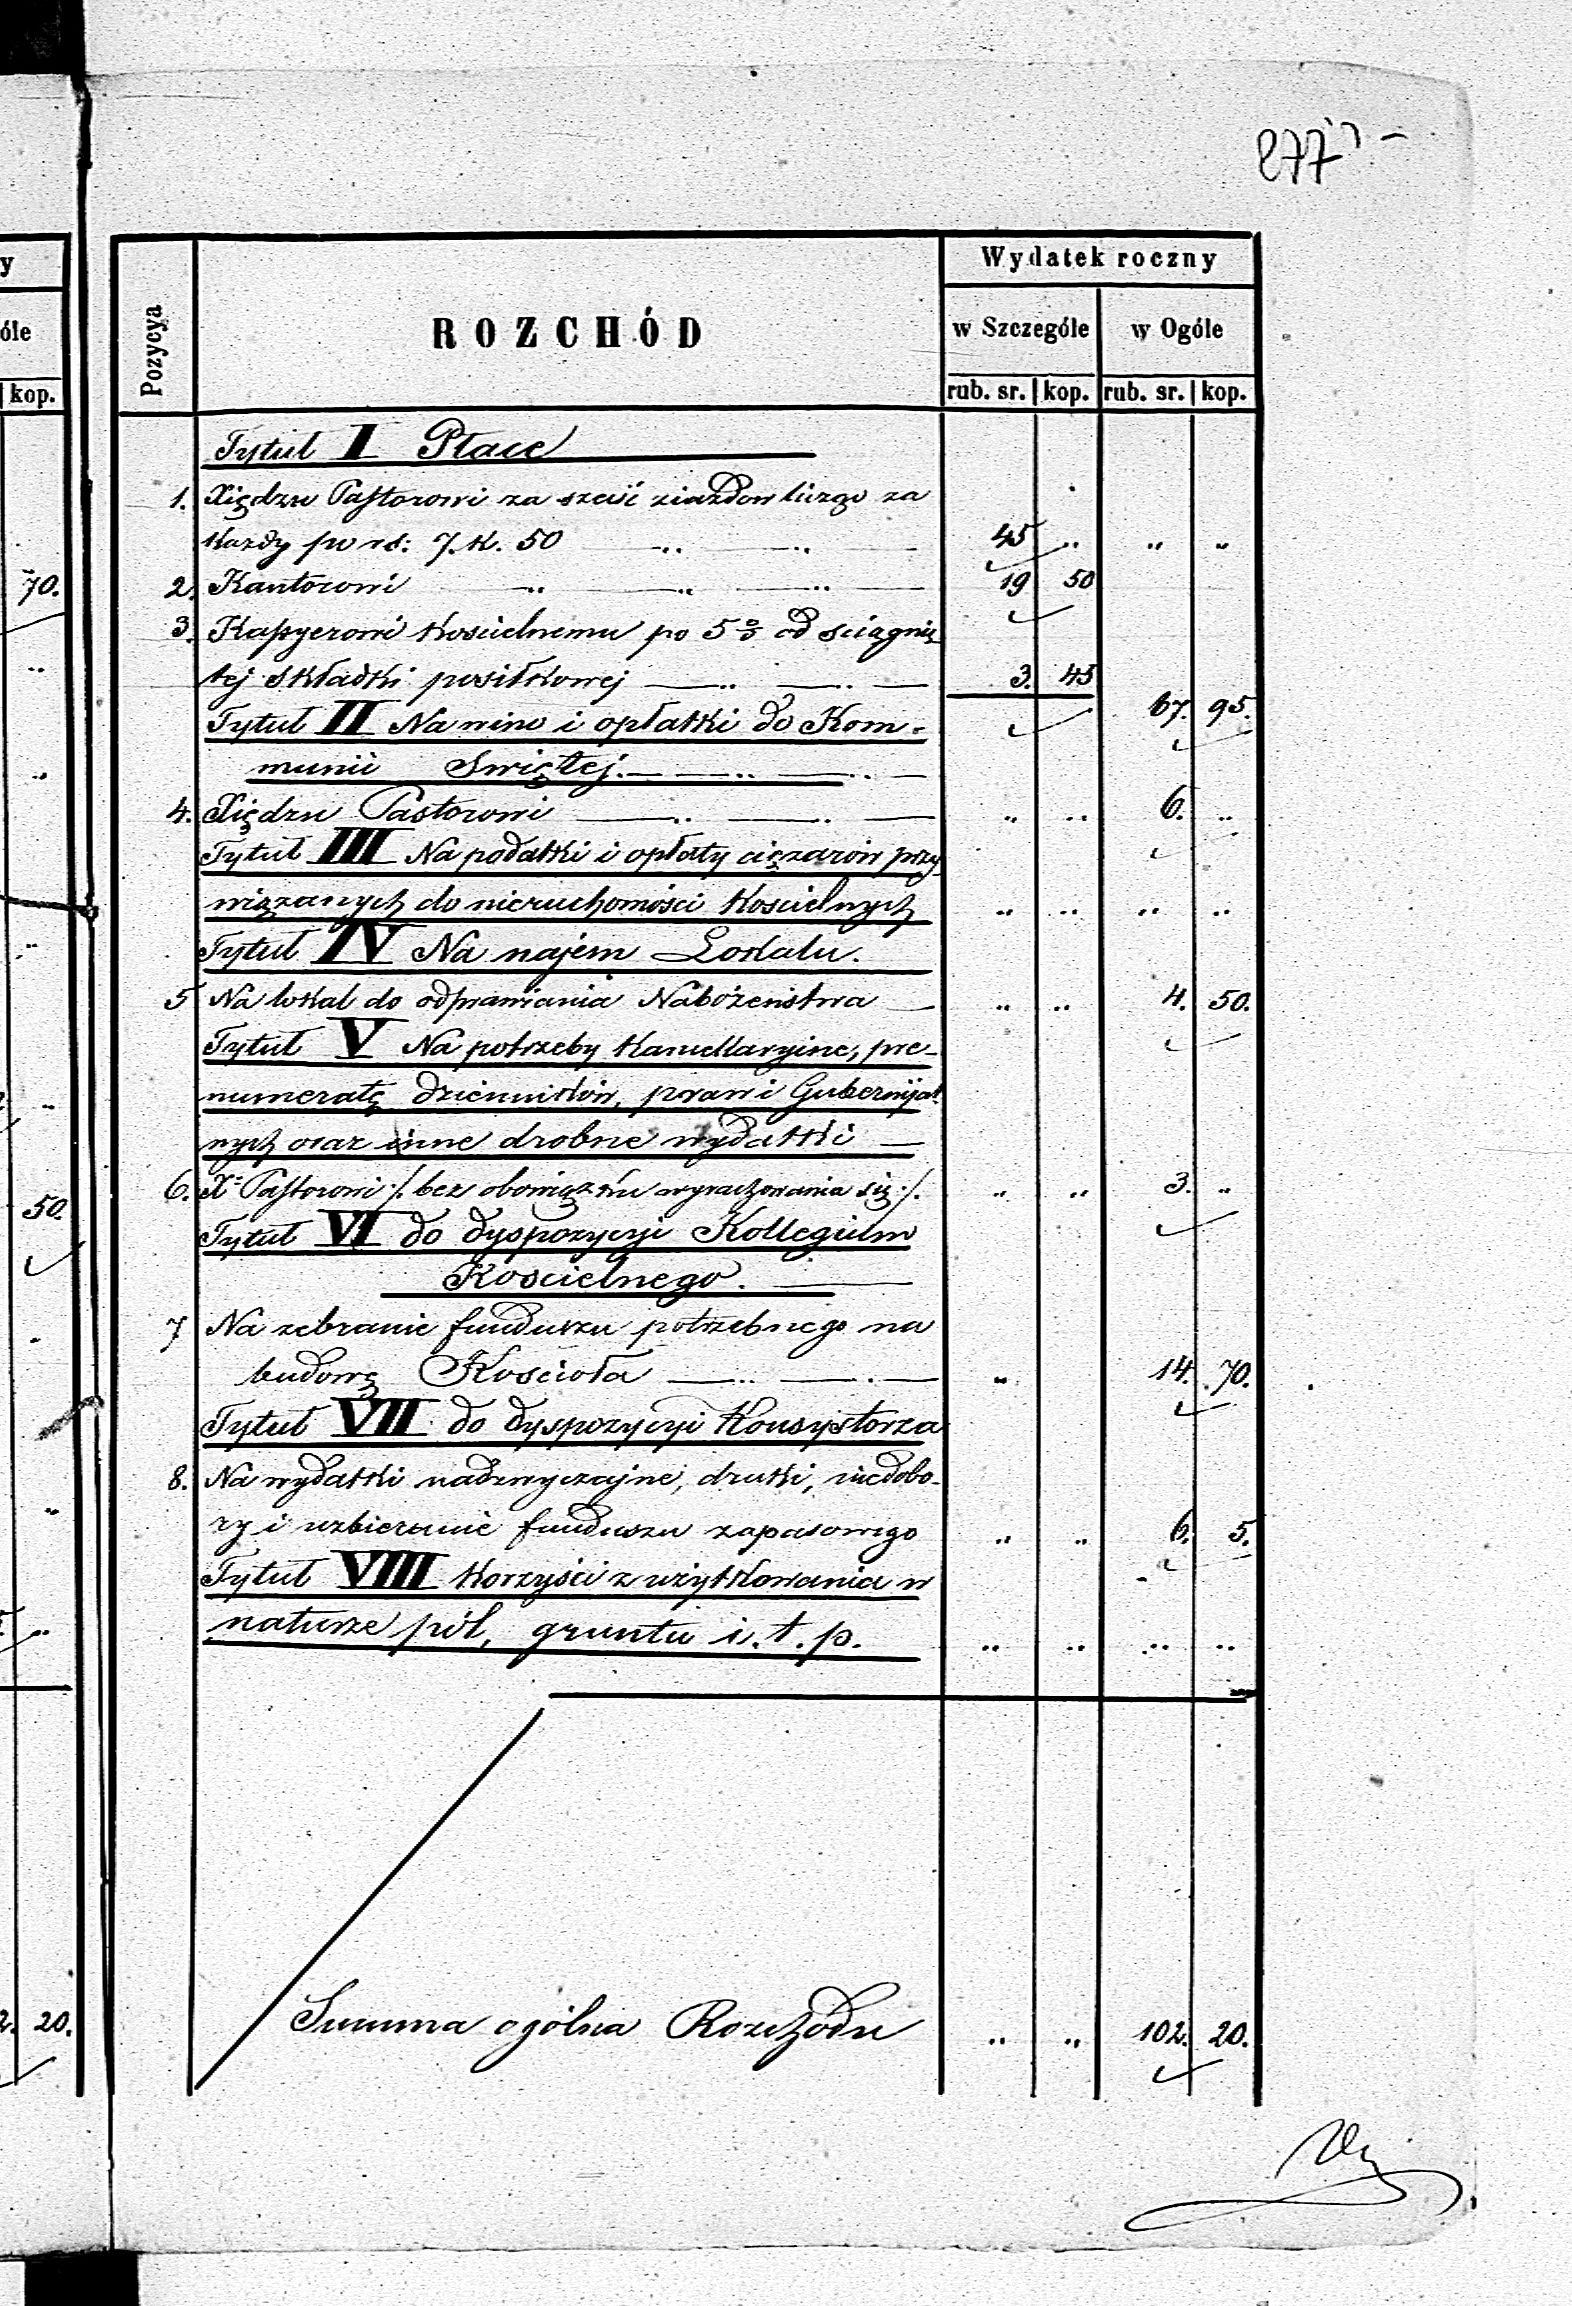 277
y
óle
kop.
70.
50.
20.
Pozycya
ROZCHÓD
Wydatek roczny
w Szczególe
w Ogóle
rub. sr. kop. rub. sr. kop.
Tytuł I Płace
1. Xiędzu Pastorowi za sześć ziazdow licząc za
każdy po rs: 7. k. 50 — „ — „ — 45 „ „ „
2. Kantorowi — „ — „ — „ — 19 50
3. Kassyerowi kościelnemu po 5% od sciągnię
tej składki posiłkowej — „ — „ — 3. 45
67. 95.
Tytuł II Na wino i opłatki do Kom-
munii Swiętej. — „ — „ —
4. Xiędzu Pastorowi — „ — „ — „ „ 6. „
Tytuł III Na podatki i opłaty ciężarów przy
wiązanych do nieruchomości Kościelnych „ „ „ „
Tytuł IV Na najem Lokalu.
5 Na lokal do odprawiania Nabożeństwa — „ „ 4. 50.
Tytuł V Na potrzeby kancellaryine, pre-
numeratę dzienników, praw i Gubernijal
nych oraz inne drobne wydatki —
6. X: Pastorowi /. bez obowiązku wyrachowania się ./. „ „ 3. „
Tytuł VI do dyspozycyi Kollegium
Kościelnego. —
7 Na zebranie funduszu potrzebnego na
budowę Kościoła — „ — „ — „ 14. 70.
Tytuł VII do dyspozycyi Konsystorza
8. Na wydatki nadzwyczajne, druki, niedobo-
ry i uzbieranie funduszu zapasowego „ „ 6. 5.
Tytuł VIII Korzyści z użytkowania w
naturze pól, gruntu i. t. p. „ „ „ „
Summa ogólna Rozchodu „ „ 102. 20.